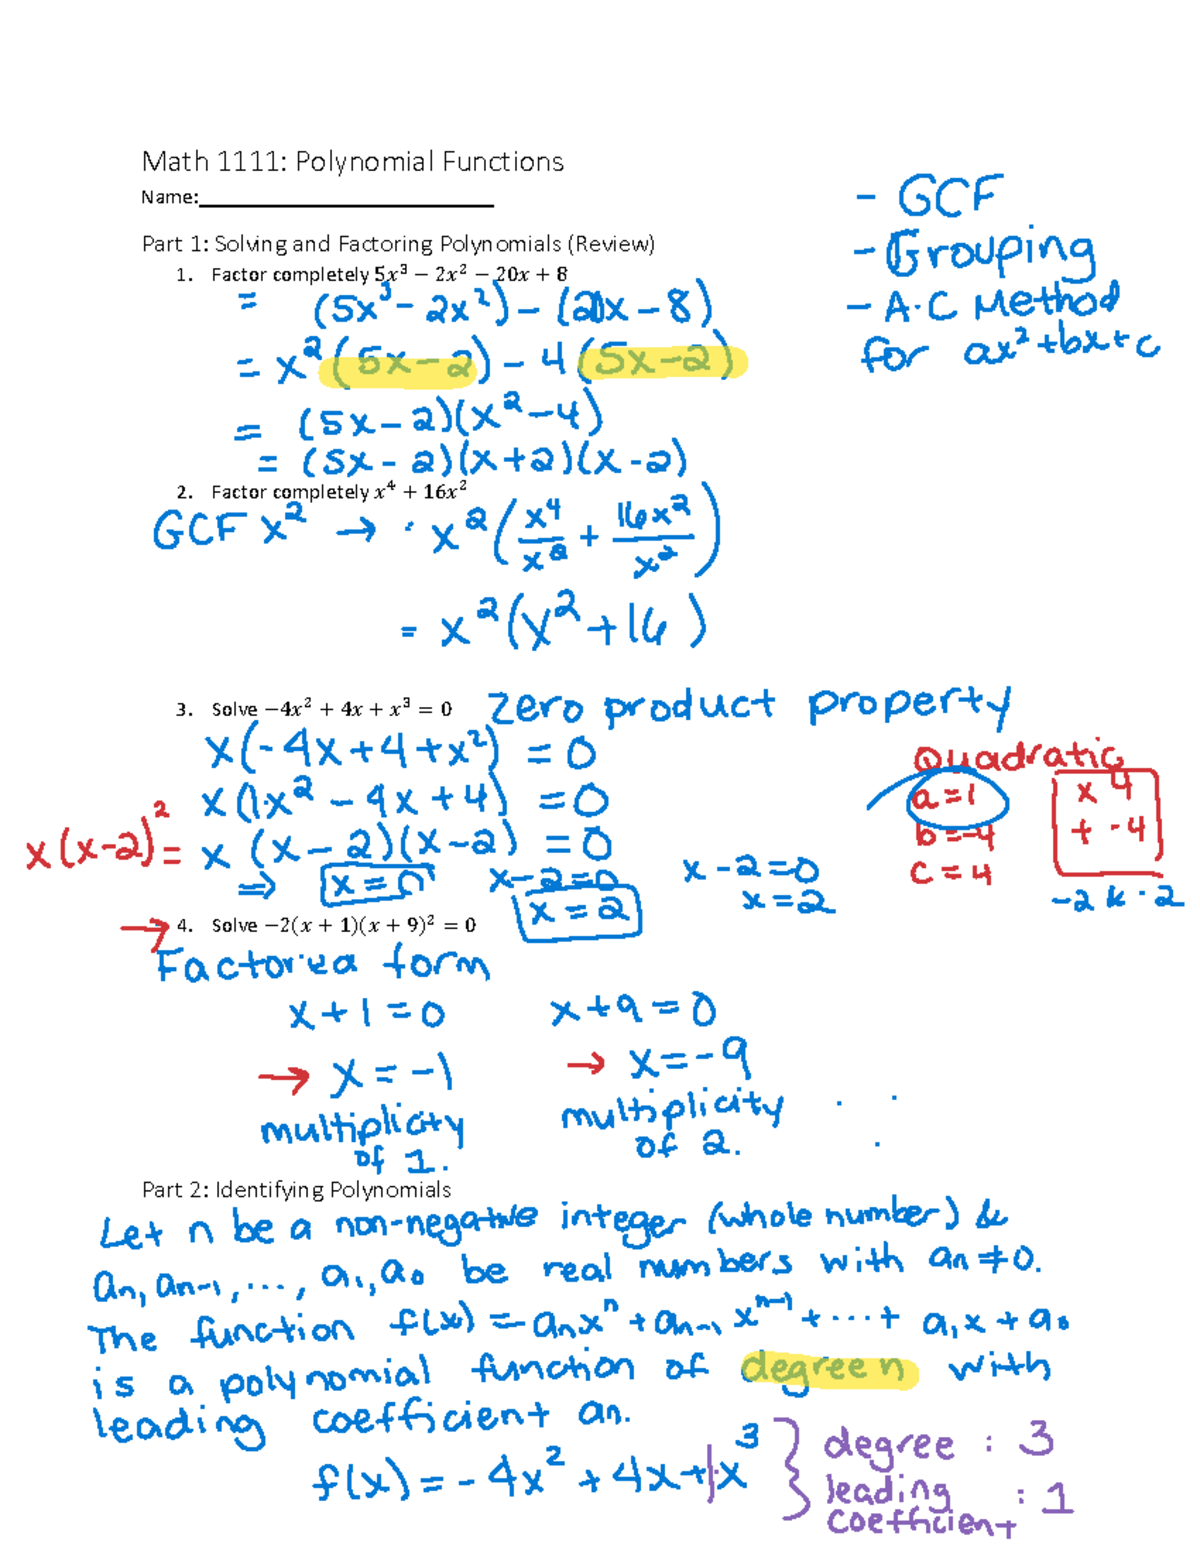 Math 1111: Polynomial Functions
Name:
- GCF
- Grouping
- A·C Method
for ax² + bx + c
Part 1: Solving and Factoring Polynomials (Review)
1. Factor completely 5x³ − 2x² − 20x + 8
= (5x³ - 2x²) - (20x - 8)
= x²(5x - 2) - 4(5x - 2)
= (5x - 2)(x² - 4)
= (5x - 2)(x + 2)(x - 2)
2. Factor completely x⁴ + 16x²
GCF x² → · x²(x⁴/x² + 16x²/x²)
= x²(x² + 16)
3. Solve −4x² + 4x + x³ = 0 zero product property
x(-4x + 4 + x²) = 0
x(1x² - 4x + 4) = 0
x(x-2)² = x (x - 2)(x - 2) = 0
⇒ x = 0 x - 2 = 0
x = 2
x - 2 = 0
x = 2
Quadratic
a = 1
b = -4
c = 4
x 4
+ -4
-2 & -2
→ 4. Solve −2(x + 1)(x + 9)² = 0
Factored form
x + 1 = 0 x + 9 = 0
→ x = -1 → x = -9
multiplicity of 1. multiplicity of 2.
Part 2: Identifying Polynomials
Let n be a non-negative integer (whole number) &
aₙ, aₙ₋₁, ..., a₁, a₀ be real numbers with aₙ ≠ 0.
The function f(x) = aₙxⁿ + aₙ₋₁xⁿ⁻¹ + ··· + a₁x + a₀
is a polynomial function of degree n with
leading coefficient aₙ.
f(x) = -4x² + 4x + 1·x³ } degree : 3
leading coefficient : 1